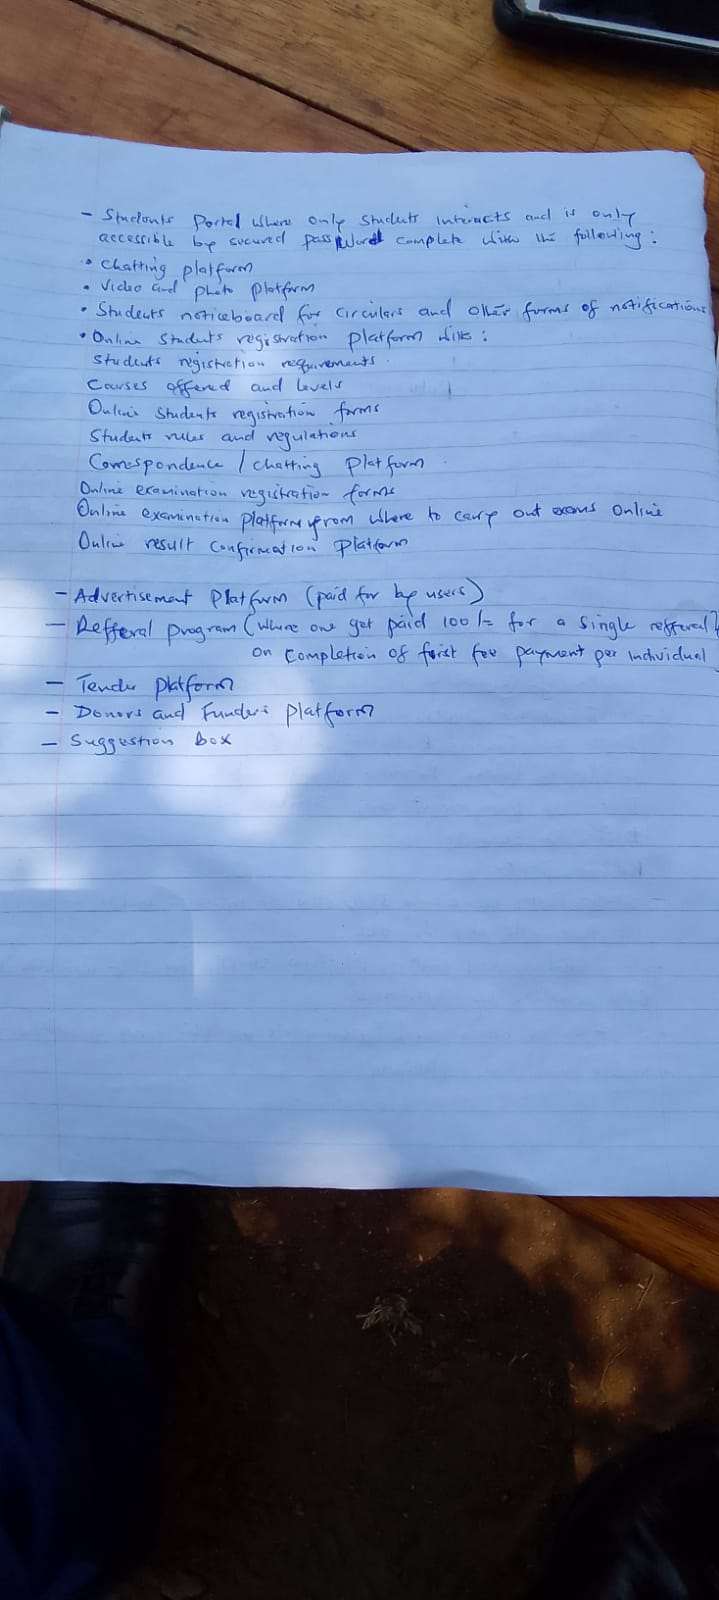 - Students Portal where only students interacts and is only
accessible by secured password complete with the following:
• Chatting platform
• Video and photo platform
• Students noticeboard for circulars and other forms of notifications
• Online students registration platform with:
Students registration requirements.
Courses offered and levels
Online students registration forms
Students rules and regulations
Correspondence / chatting platform.
Online examination registration forms
Online examination platform from where to carry out exams online
Online result confirmation platform
- Advertisement platform (paid for by users)
- Refferal program (where one get paid 100/= for a single refferal)
on completion of first fee payment per individual
- Tender platform
- Donors and Funders platform
- Suggestion box